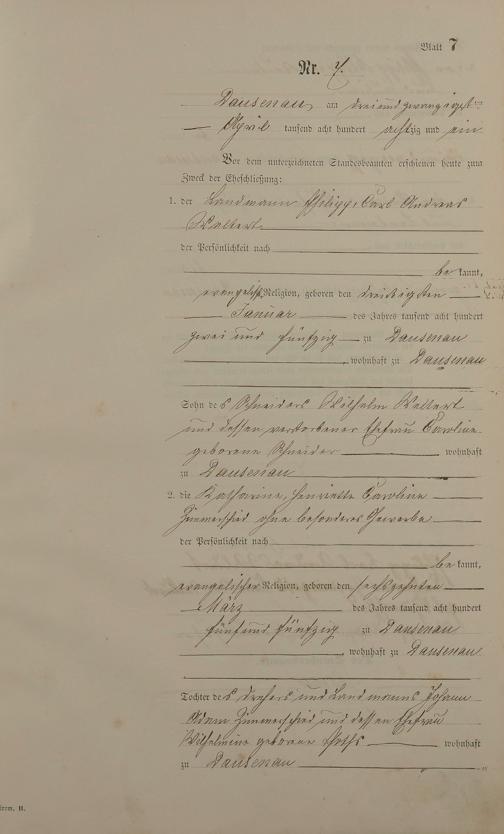 Blatt 7
Nr. 7.
Dausenau, am dreiundzwanzigsten
April tausend acht hundert achtzig und ein
Vor dem unterzeichneten Standesbeamten erschienen heute zum
Zweck der Eheschließung:
1. der Landmann Philipp, Carl Andreas
Weltert
der Persönlichkeit nach
be kannt,
evangelisch Religion, geboren den dreißigsten
Januar des Jahres tausend acht hundert
zwei und fünfzig zu Dausenau
, wohnhaft zu Dausenau
Sohn des Schneiders Wilhelm Weltert
und dessen verstorbener Ehefrau Caroline
geborene Schneider wohnhaft
zu Dausenau
2. die Katharine, Henriette Caroline
Zimmerschied ohne besonderes Gewerbe
der Persönlichkeit nach
be kannt,
evangelischer Religion, geboren den sechszehnten
März des Jahres tausend acht hundert
fünf und fünfzig zu Dausenau
, wohnhaft zu Dausenau
Tochter des Drehers und Landmanns Johann
Adam Zimmerschied und dessen Ehefrau
Wilhelmine geborene wohnhaft
zu Dausenau